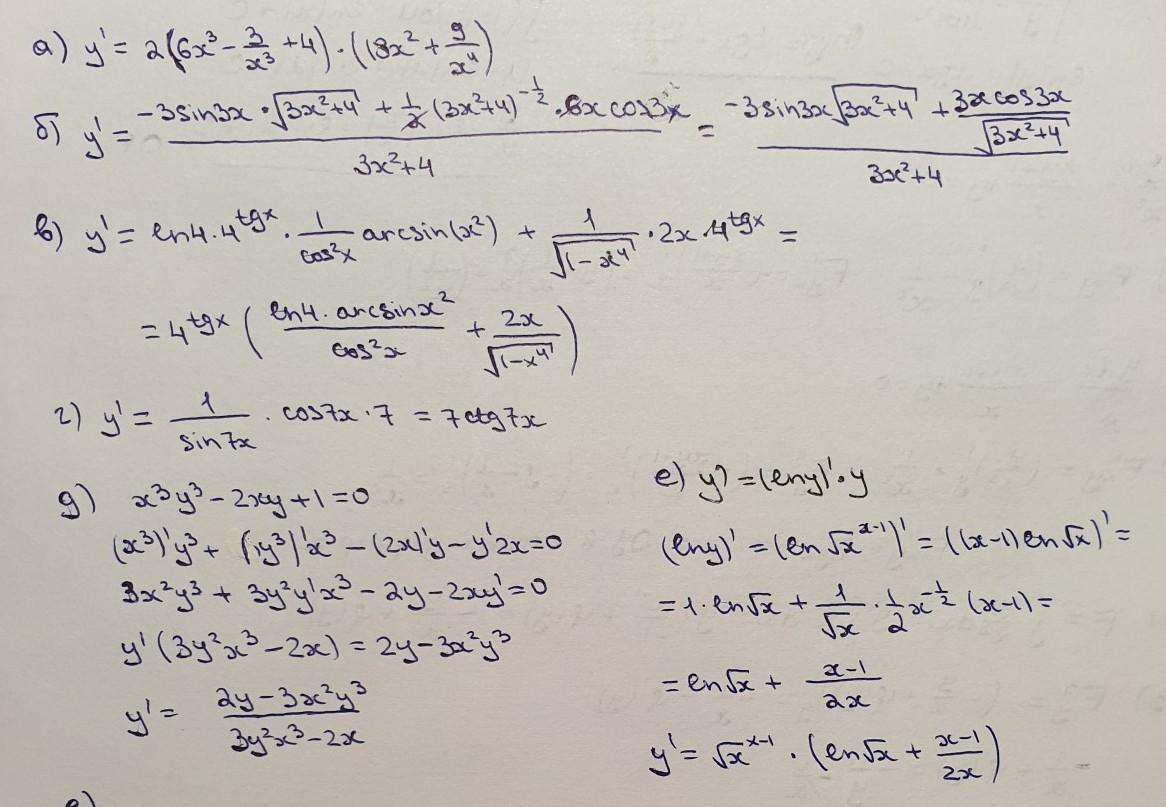 а) y' = 2(6x³ - 3/x³ + 4) · (18x² + 9/x⁴)
б) y' = (-3sin3x · √(3x²+4) + 1/2 (3x²+4)^(-1/2) · 6x cos3x)/(3x²+4) = (-3sin3x√(3x²+4) + 3x cos3x/√(3x²+4))/(3x²+4)
в) y' = ln4 · 4^(tgx) · 1/cos²x arcsin(x²) + 1/√(1-x⁴) · 2x · 4^(tgx) =
= 4^(tgx) (ln4 · arcsinx²/cos²x + 2x/√(1-x⁴))
г) y' = 1/sin7x · cos7x · 7 = 7ctg7x
д) x³y³ - 2xy + 1 = 0
(x³)'y³ + (y³)'x³ - (2x)'y - y'2x = 0
3x²y³ + 3y²y'x³ - 2y - 2xy' = 0
y'(3y²x³ - 2x) = 2y - 3x²y³
y' = (2y - 3x²y³)/(3y²x³ - 2x)
е) y' = (lny)' · y
(lny)' = (ln√x^(x-1))' = ((x-1)ln√x)' =
= 1 · ln√x + 1/√x · 1/2 x^(-1/2) (x-1) =
= ln√x + (x-1)/2x
y' = √x^(x-1) · (ln√x + (x-1)/2x)